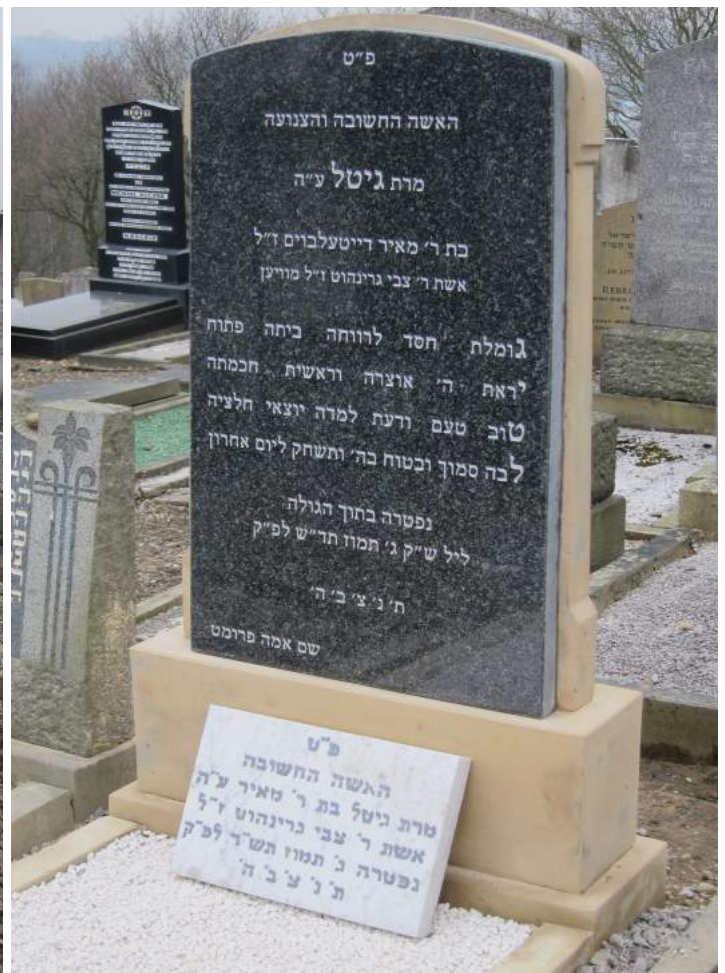 פ״ט
האשה החשובה והצנועה
מרת גיטל ע״ה
בת ר׳ מאיר דייטעלבוים ז״ל
אשת ר׳ צבי גרינהוט ז״ל מוויען
גומלת חסד לרווחה ביתה פתוח
יראת ה׳ אוצרה וראשית חכמתה
טוב טעם ודעת למדה יוצאי חלציה
לבה סמוך ובטוח בה׳ ותשחק ליום אחרון
נפטרה בתוך הגולה
ליל ש״ק ג׳ תמוז תד״ש לפ״ק
ת׳ נ׳ צ׳ ב׳ ה׳
שם אמה פרומט
פ״ט
האשה החשובה
מרת גיטל בת ר׳ מאיר ע״ה
אשת ר׳ צבי גרינהוט ז״ל
נפטרה ג׳ תמוז תש״ד לפ״ק
ת׳ נ׳ צ׳ ב׳ ה׳